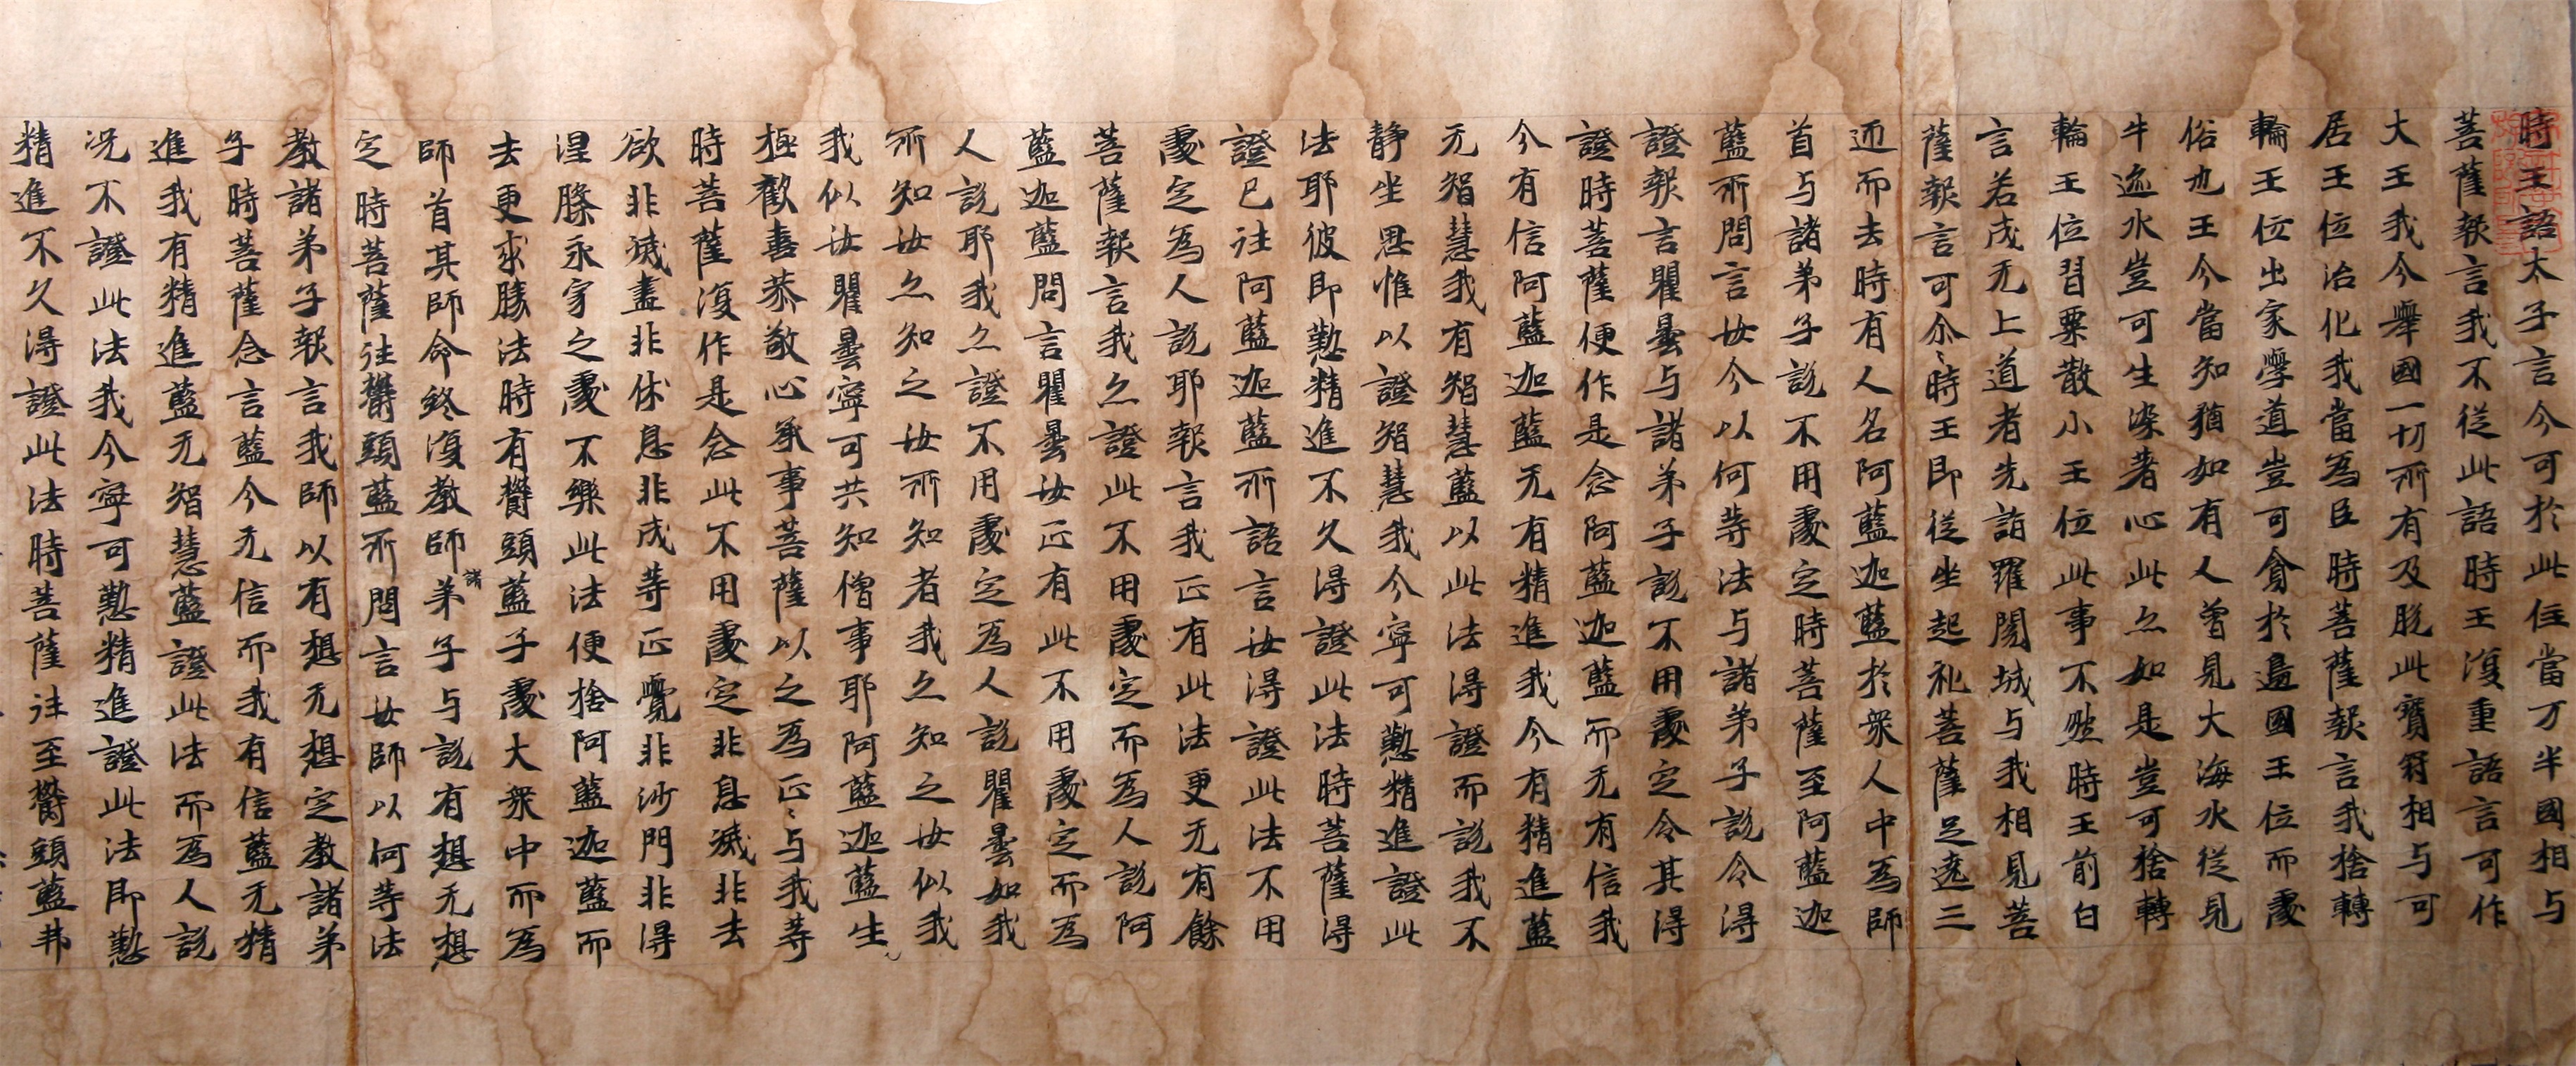 時王語太子言今可於此住當万半國相与
菩薩報言我不從此語時王復重語言可作
大王我今舉國一切所有及脫此寶冠相与可
居王位治化我當為臣時菩薩報言我捨轉
輪王位出家學道豈可貪於邊國王位而處
俗也王今當知猶如有人曾見大海水從見
牛迹水豈可生染著心此亦如是豈可捨轉
輪王位習粟散小王位此事不然時王前白
言若成无上道者先詣羅閱城与我相見菩
薩報言可尒〻時王即從坐起礼菩薩足遶三
迊而去時有人名阿藍迦藍於衆人中為師
首与諸弟子說不用處定時菩薩至阿藍迦
藍所問言汝今以何等法与諸弟子說令得
證報言瞿曇与諸弟子說不用處定令其得
證時菩薩便作是念阿藍迦藍而无有信我
今有信阿藍迦藍无有精進我今有精進藍
无智慧我有智慧藍以此法得證而說我不
靜坐思惟以證智慧我今寧可懃精進證此
法耶彼即懃精進不久得證此法時菩薩得
證已往阿藍迦藍所語言汝得證此法不用
處定為人說耶報言我正有此法更无有餘
菩薩報言我亦證此不用處定而為人說阿
藍迦藍問言瞿曇汝正有此不用處定而為
人說耶我亦證不用處定為人說瞿曇如我
所知汝亦知之汝所知者我亦知之汝似我
我似汝瞿曇寧可共知僧事耶阿藍迦藍生
極歡喜恭敬心承事菩薩以之為正〻与我等
時菩薩復作是念此不用處定非息滅非去
欲非滅盡非休息非成等正覺非沙門非得
涅槃永寂之處不樂此法便捨阿藍迦藍而
去更求勝法時有鬱頭藍子處大衆中而為
師首其師命終復教師諸弟子与說有想无想
定時菩薩往鬱頭藍所問言汝師以何等法
教諸弟子報言我師以有想无想定教諸弟
子時菩薩念言藍今无信而我有信藍无精
進我有精進藍无智慧藍證此法而為人說
況不證此法我今寧可懃精進證此法即懃
精進不久得證此法時菩薩往至鬱頭藍弗